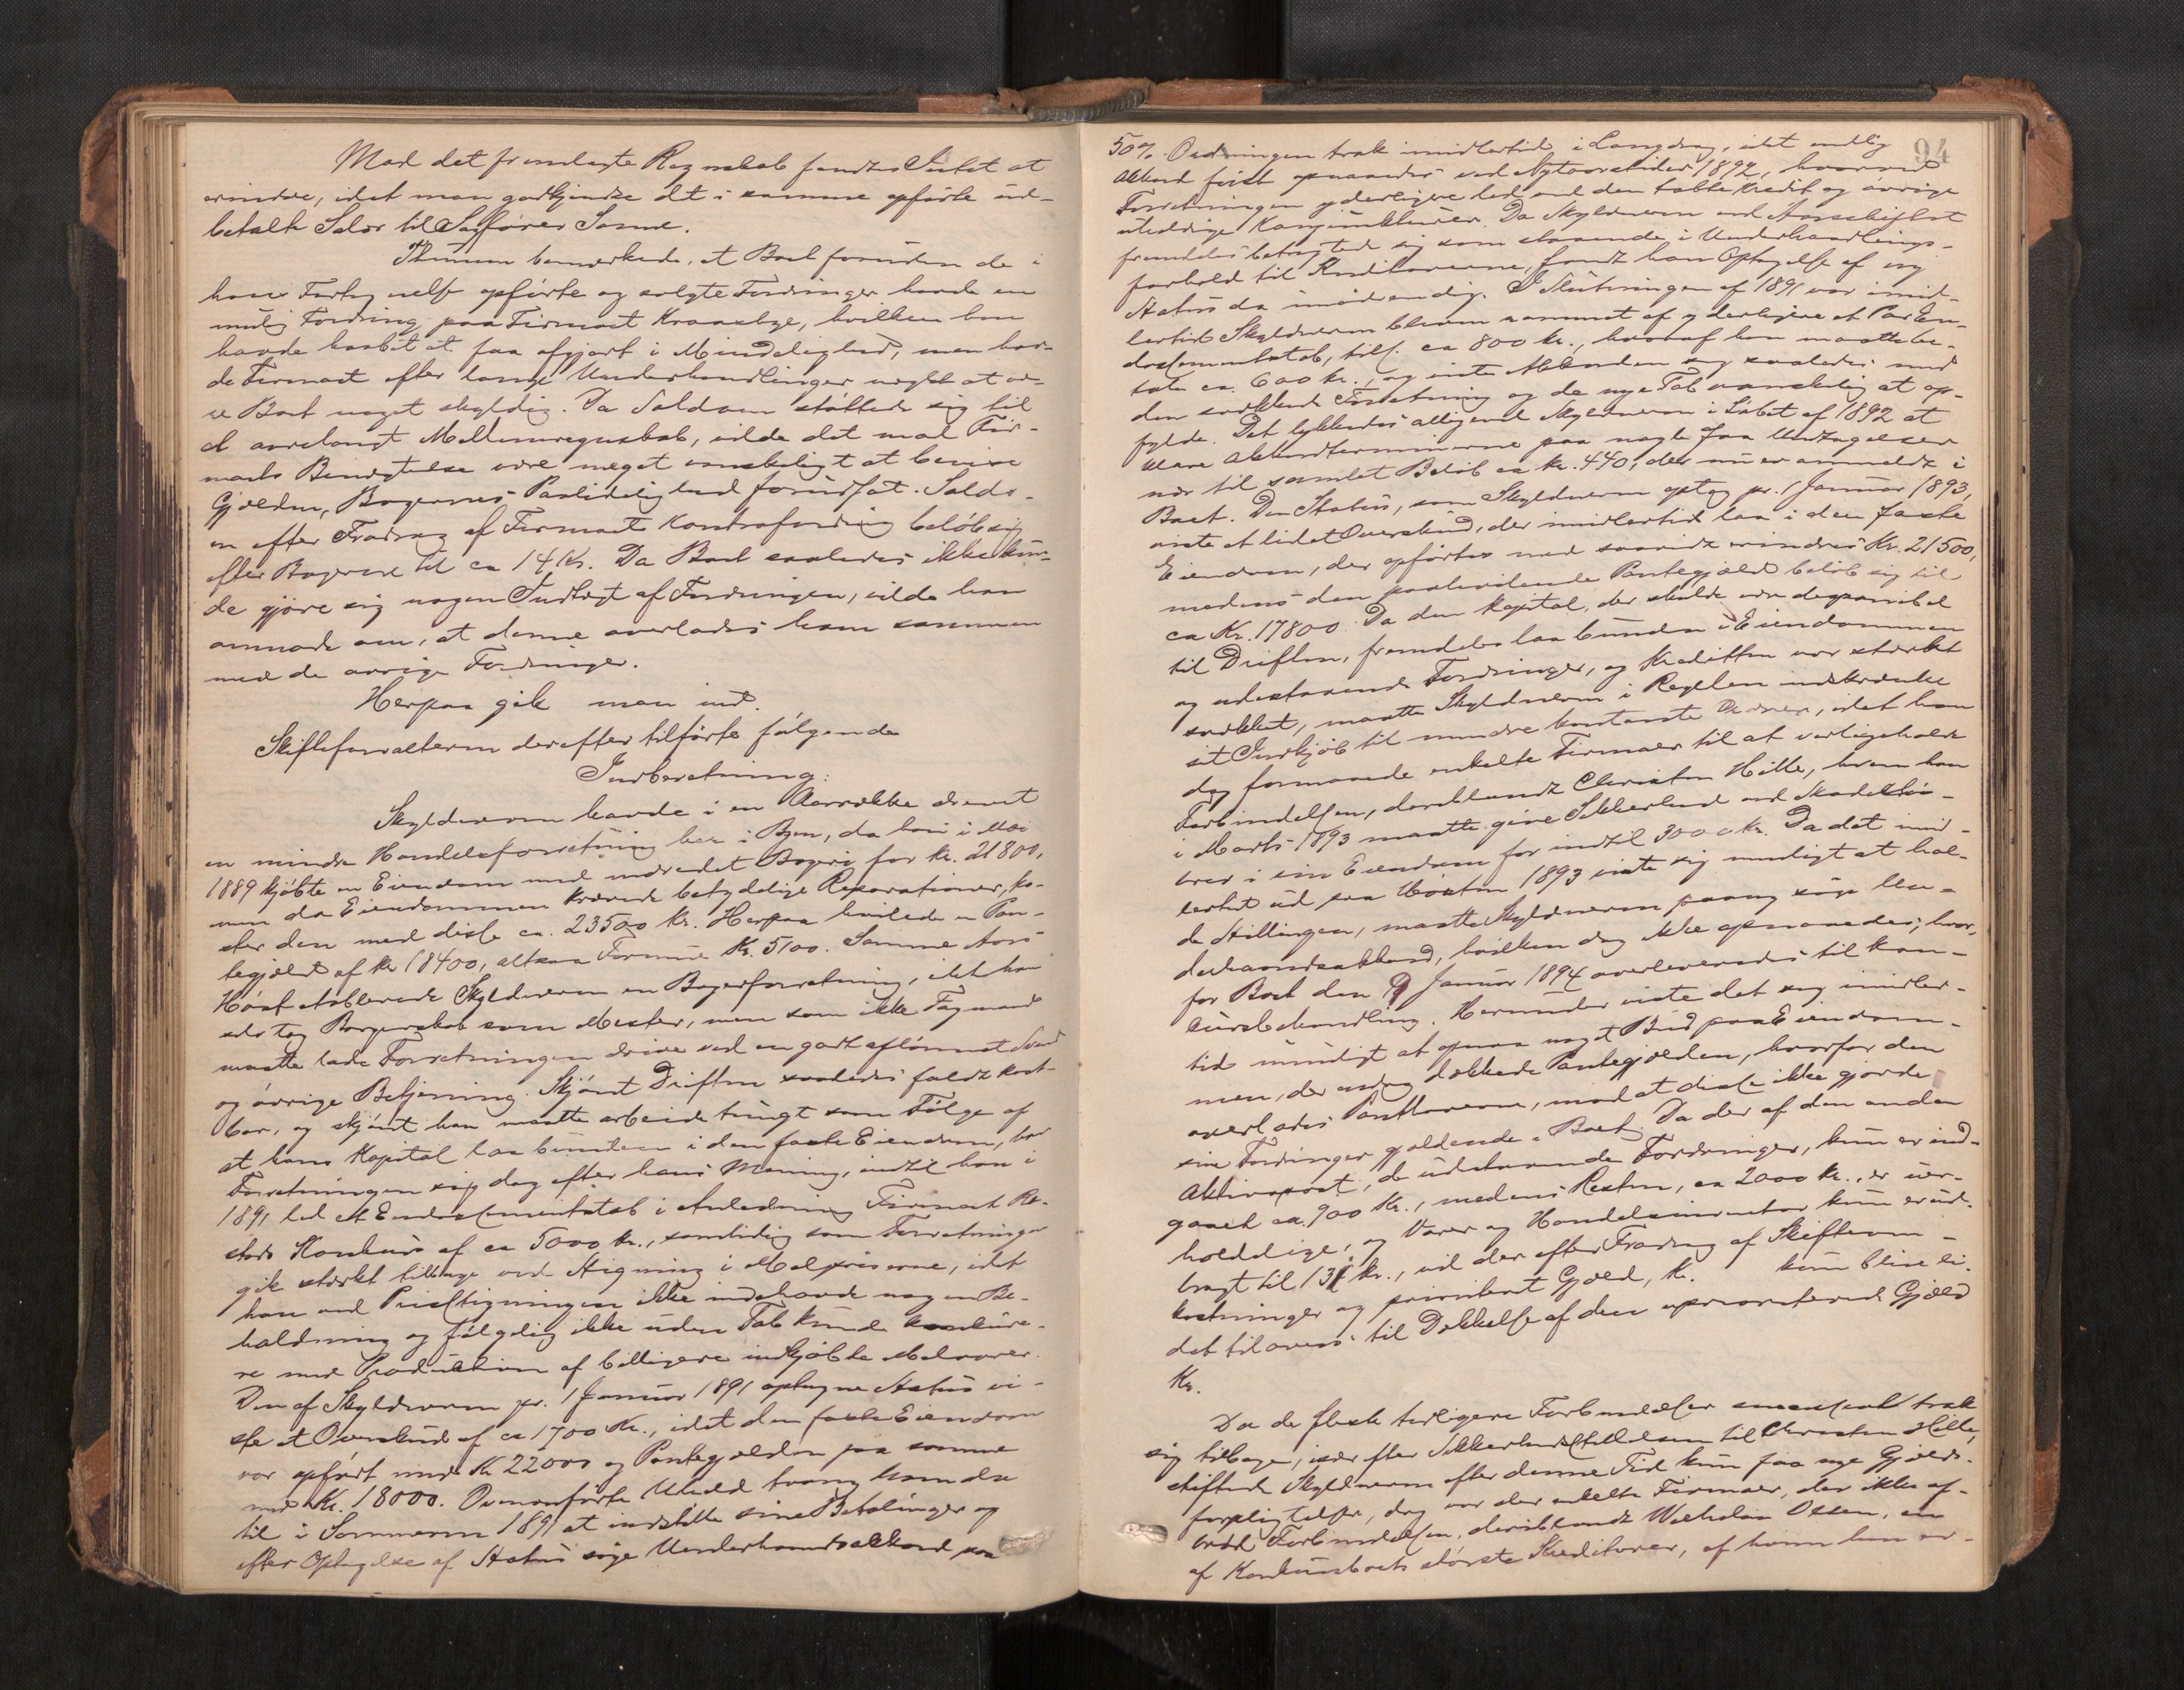 Mod det fremlagte Regnskab fandtes Intet at
erindre, idet man godkjendte det i samme opførte ud-
betalte Salær til Sagfører Somme.
Thimm bemærkede, at Boet foruden de i
hans Fortegnelse opførte og solgte Fordringer havde en
mulig Fordring paa Firmaet Kraasbye, hvilken han
havde haabet at faa afgjort i Mindelighed, men hav-
de Firmaet efter lange Underhandlinger negtet at væ-
re Boet noget skyldig. Da Saldoen støttede sig til
et aarelangt Mellemregnskab, vilde det mod Fir-
maets Benegtelse være meget vanskeligt at bevise
Gjælden, Bøgernes Paalidelighed forudsat. Saldo-
en efter Fradrag af Firmaets Kontrafordring beløb sig
efter Bøgerne til ca 14 Kr. Da Boet saaledes ikke kun-
de gjøre sig nogen Indtægt af Fordringen, vilde han
anmode om, at denne overlodes ham sammen
med de øvrige Fordringer.
Herpaa gik man ind.
Skifteforvalteren derefter tilførte følgende
Indberetning:
Skyldneren havde i en Aarrække drevet
en mindre Handelsforretning her i Byen, da han i Mai
1889 kjøbte en Eiendom med indredet Bageri for Kr. 21800,
men da Eiendommen krævede betydelige Reparationer, ko-
ster den med disse ca. 23500 Kr. Herpaa hvilede en Pan-
tegjæld af Kr 18400, altsaa Formue Kr. 5100. Samme Aars
Høst etablerede Skyldneren en Bagerforretning, idet han
selv tog Borgerskab som Mester, men som ikke Fagmand
maatte lade Forretningen drive ved en godt aflønnet Svend
og øvrige Betjening. Skjønt Driften saaledes faldt kost-
bar, og skjønt han maatte arbeide tungt som Følge af
at hans Kapital laa bunden i den faste Eiendom, bar
Forretningen sig dog efter hans Mening, indtil han i
1891 led et Endossementstab i Anledning Firmaet
Konkurs af ca 5000 Kr., samtidig som Forretningen
gik stærkt tilbage ved Stigning i Melpriserne, idet
han ved Prisstigningen ikke indehavde nogen Be-
holdning og følgelig ikke uden Tab kunde konkure-
re med Produktion af billigere indkjøbte Melvarer.
Den af Skyldneren pr. 1 Januar 1891 optagne Status vi-
ste et Overskud af ca 1700 Kr., idet den faste Eiendom
var opført med Kr 22000 og Pantegjælden paa samme
med Kr. 18000. Ovenanførte Uheld tvang ham da
til i Sommeren 1891 at indstille sine Betalinger og
efter Optagelse af Status søge Underhaandsakkord paa
94
50%. Ordningen trak imidlertid i Langdrag, idet endelig
Akkord først opnaaedes ved Nytaarstider 1892, hvorved
Forretningen yderligere led ved den tabte Kredit og øvrige
uheldige Konjunkturer. Da Skyldneren ved Aarsskiftet
fremdeles betragtede sig som staaende i Underhandlings-
forhold til Kreditorerne, fandt han Optagelse af ny
Status da unødvendig. I Slutningen af 1891 var imid-
lertid Skyldneren bleven rammet af yderligere et Par En-
dossementstab, tils. ca 800 Kr., hvoraf han maatte be-
tale ca. 600 Kr., og viste Akkorden sig saaledes med
den svækkede Forretning og de nye Tab vanskelig at op-
fylde. Det lykkedes alligevel Skyldneren i Løbet af 1892 at
klare Akkordterminerne paa nogle faa Undtagelser
nær til samlet Beløb ca Kr. 440, der nu er anmeldt i
Boet. Den Status, som Skyldneren optog pr. 1 Januar 1893,
viste et lidet Overskud, der imidlertid laa i den faste
Eiendom, der opførtes med saavidt erindres Kr. 21500,
medens den paahvilende Pantegjæld beløb sig til
ca Kr. 17800. Da den Kapital, der skulde være disponibel
til Driften, fremdeles laa bunden i Eiendommen
og udestaaende Fordringer, og Kreditten var stærkt
svækket, maatte Skyldneren i Regelen indskrænke
sit Indkjøb til mindre kontante Ordrer, idet han
dog formaaede enkelte Firmaer til at vedligeholde
Forbindelsen, deriblandt Christen Hille, hvem han
i Marts 1893 maatte give Sikkerhed ved Skadeslø-
brev i sin Eiendom for indtil 3000 Kr. Da det imid-
lertid ud paa Høsten 1893 viste sig umuligt at hol-
de Stillingen, maatte Skyldneren paany søge Un-
derhaandsakkord, hvilken dog ikke opnaaedes; hvor-
for Boet den 9 Januar 1894 overleveredes til kon-
kursbehandling. Herunder viste det sig imidler-
tid umuligt at opnaa noget Bud paa Eiendom-
men, der endog dækkede Pantegjælden, hvorfor den
overlodes Panthaverne, mod at disse ikke gjorde
sine Fordringer gjældende i Boet. Da der af den anden
Aktivapost, de udestaaende Fordringer, kun er ind-
gaaet ca. 900 Kr., medens Resten, ca 2000 Kr., er uer-
holdelige, og Varer og Handelsinventar kun er ud-
bragt til 131 Kr., vil der efter Fradrag af Skifteom-
kostninger og prioriteret Gjæld, Kr. kun blive li-
det tilovers til Dækkelse af den uprioriterede Gjæld
Kr.
Da de fleste tidligere Forbindelser trak
sig tilbage, især efter Sikkerhedsstillelsen til Christen Hille,
stiftede Skyldneren efter denne Tid kun faa nye Gjælds-
forpligtelser, dog var der enkelte Firmaer, der ikke af-
brød Forbindelsen, deriblandt Wilhelm Olsen, en
af Konkursboets største Kreditorer, af hvem han er-